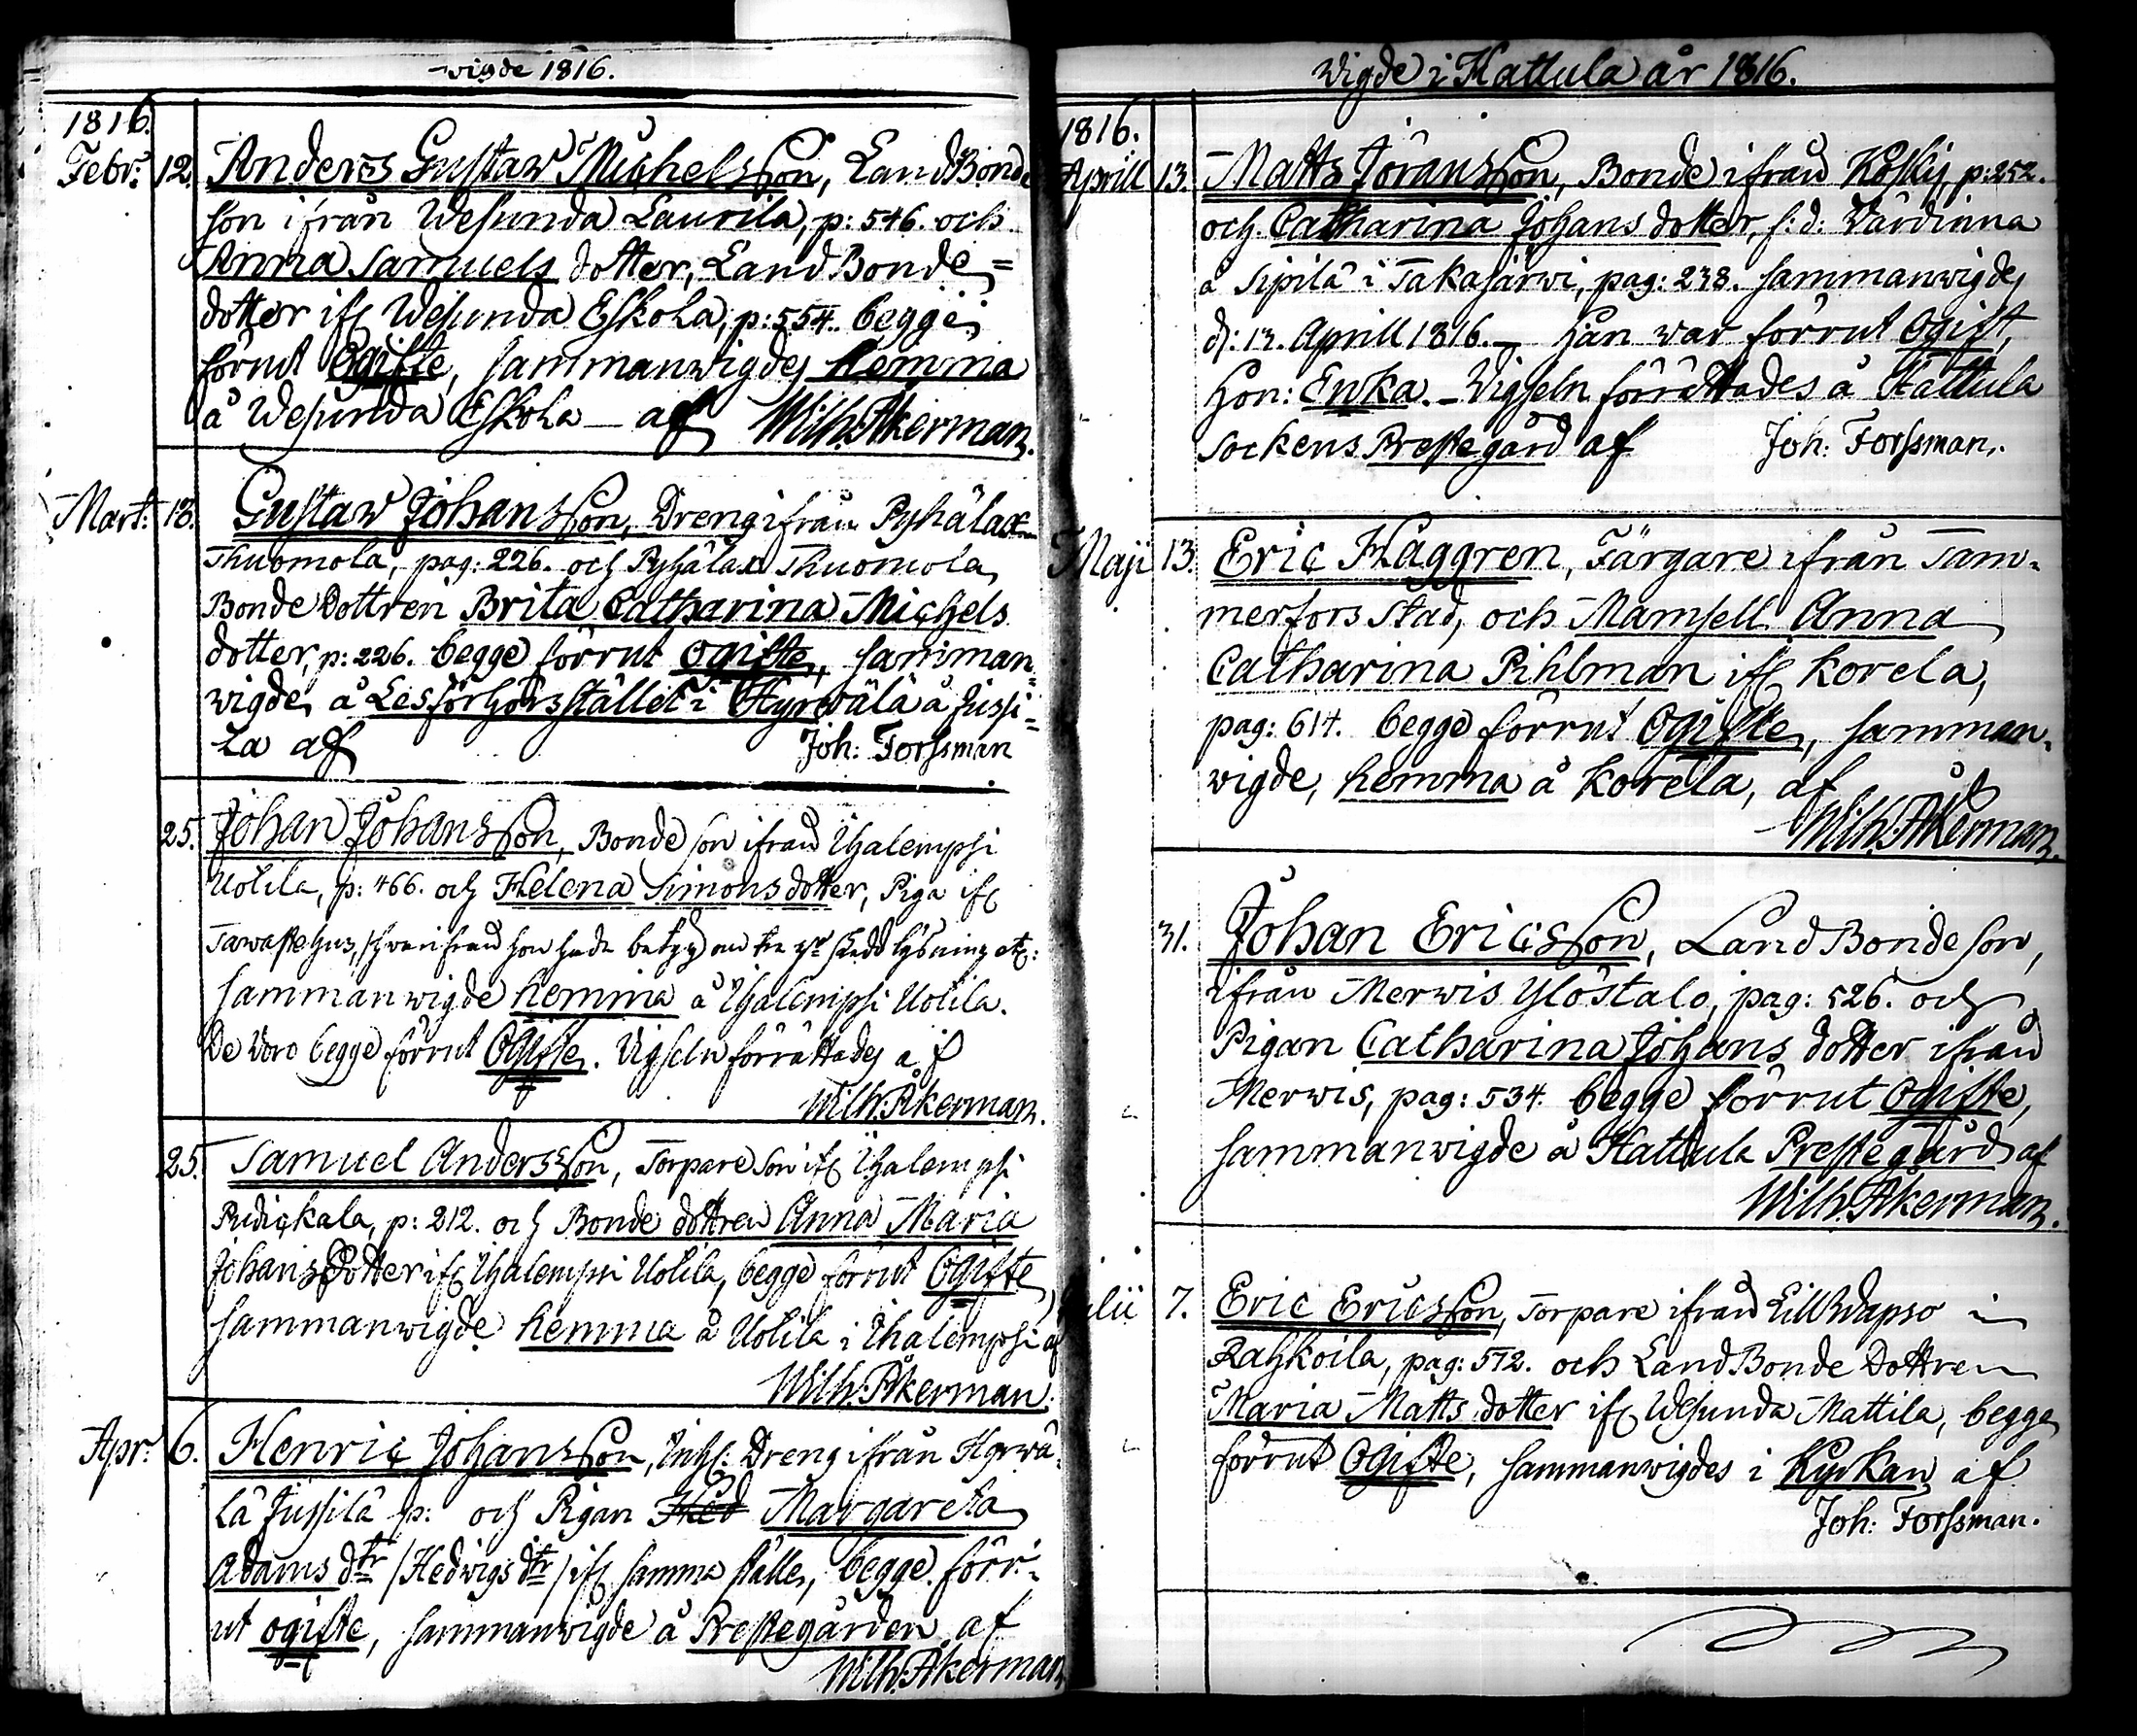 wigde 1816.
1816.
Febr: 12. Anders Gustaw Michelsson, LandBonde
son ifrån Wesunda Laurila, p: 546. och
Anna Samuels dotter, LandBonde=
dotter ifr Wesunda Eskola, p: 554. begge
förrut Ogifte, sammanwigdes hemma
å Wesunda Eskola — af Wilh: Åkerman.
Mart: 18. Gustaw Johansson, Dreng ifrån Pyhälax
Thuomola, pag: 226. och Pyhälax Thuomola
Bonde Dottren Brita Catharina Michels
dotter, p: 226. begge förrut ogifte, samman=
wigde, å Läsförhörsstället i Hyrwälä å Jussi=
la af Joh: Forssman
25. Johan Johansson, Bonde son ifrån Ihalempsi
Uolila, p: 466. och Helena Simonsdotter, Piga ifr
Tawastehus, /hwarifrån hon hade betyg om
sammanwigde hemma å Ihalempsi Uolila.
De woro begge förrut Ogifte. Vigseln förrättades af
Wilh: Åkerman.
25. Samuel Andersson, Torpare son ifr Ihalempsi
p: 212. och Bonde dottren Anna Maria
Johans Dotter ifr Ihalempsi Uolila, begge förrut Ogifte,
sammanwigde hemma å Uolila i Ihalempsi af
Wilh: Åkerman.
Apr: 6. Henric Johansson, Inhs: Dreng ifrån Hyrwä=
lä Jussila p: och Pigan Hed Margareta
Adams dtr /Hedwigs dtr/ ifr samma ställe, begge förr=
ut ogifte, sammanwigde å Prestegården af
Wilh: Åkerman
Wigde i Hattula år 1816.
1816.
Aprill 13. Matts Jöransson, Bonde ifrån Koski, p: 252.
och Catharina Johans dotter, f: d: Värdinna
å Sipilä i Takajärwi, pag: 238. sammanwigdes
d: 13. Aprill 1816. — Han war förrut Ogift,
Hon: Enka. — Wigseln förrättades å Hattula
Sockens Prestegård af Joh: Forssman.
Maji 13. Eric Häggren, Färgare ifrån Tam=
merfors Stad, och Mamsell Anna
Catharina Pihlman ifr Korela,
pag: 614. begge förrut Ogifte, samman=
wigde, hemma å Korela, af
Wilh: Åkerman.
31. Johan Ericsson, LandBonde son,
ifrån Merwis Ylöstalo, pag: 526. och
Pigan Catharina Johans dotter ifrån
Merwis, pag: 534. begge förrut ogifte,
sammanwigde å Hattula Prestegård af
Wilh: Åkerman.
Julii 7. Eric Ericsson, Torpare ifrån i
Rahkoila, pag: 572. och LandBonde Dottren
Maria Matts dotter ifr Wesunda Mattila, begge
förrut Ogifte, sammanwigdes i Kyrkan af
Joh: Forssman.